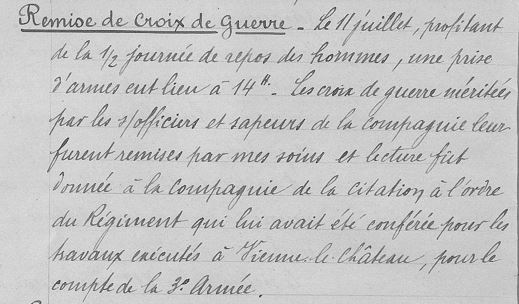 Remise de Croix de Guerre _ Le 11 juillet, profitant
de la 1/2 journée de repos des hommes, une prise
d'armes eut lieu à 14H._ Les croix de guerre méritées
par les s/officiers et sapeurs de la Compagnie leur
furent remises par mes soins et lecture fût
donnée à la Compagnie de la Citation à l'ordre
du Régiment qui lui avait été conférée pour les
travaux exécutés à Vienne-le-Château, pour le
compte de la 3e Armée.